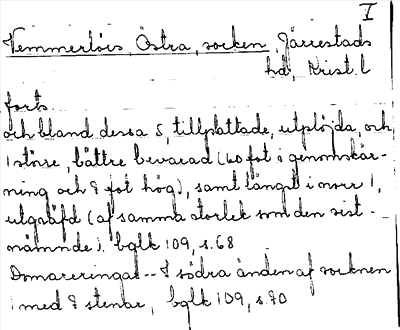 I
Vemmerlövs, Östra, socken, Järrestads
hd, Krist. l
forts.
och bland dessa 5, tillplattade, utplöjda, och
1 större, bättre bevarad (60 fot i genomskär-
ning och 8 fot hög), samt längst i norr 1,
utgräfd (af samma storlek som den sist -
nämnde). bglk 109, s. 68
Domareringar -- I södra änden af socknen
1 med 8 stenar, bglk 109, s. 70